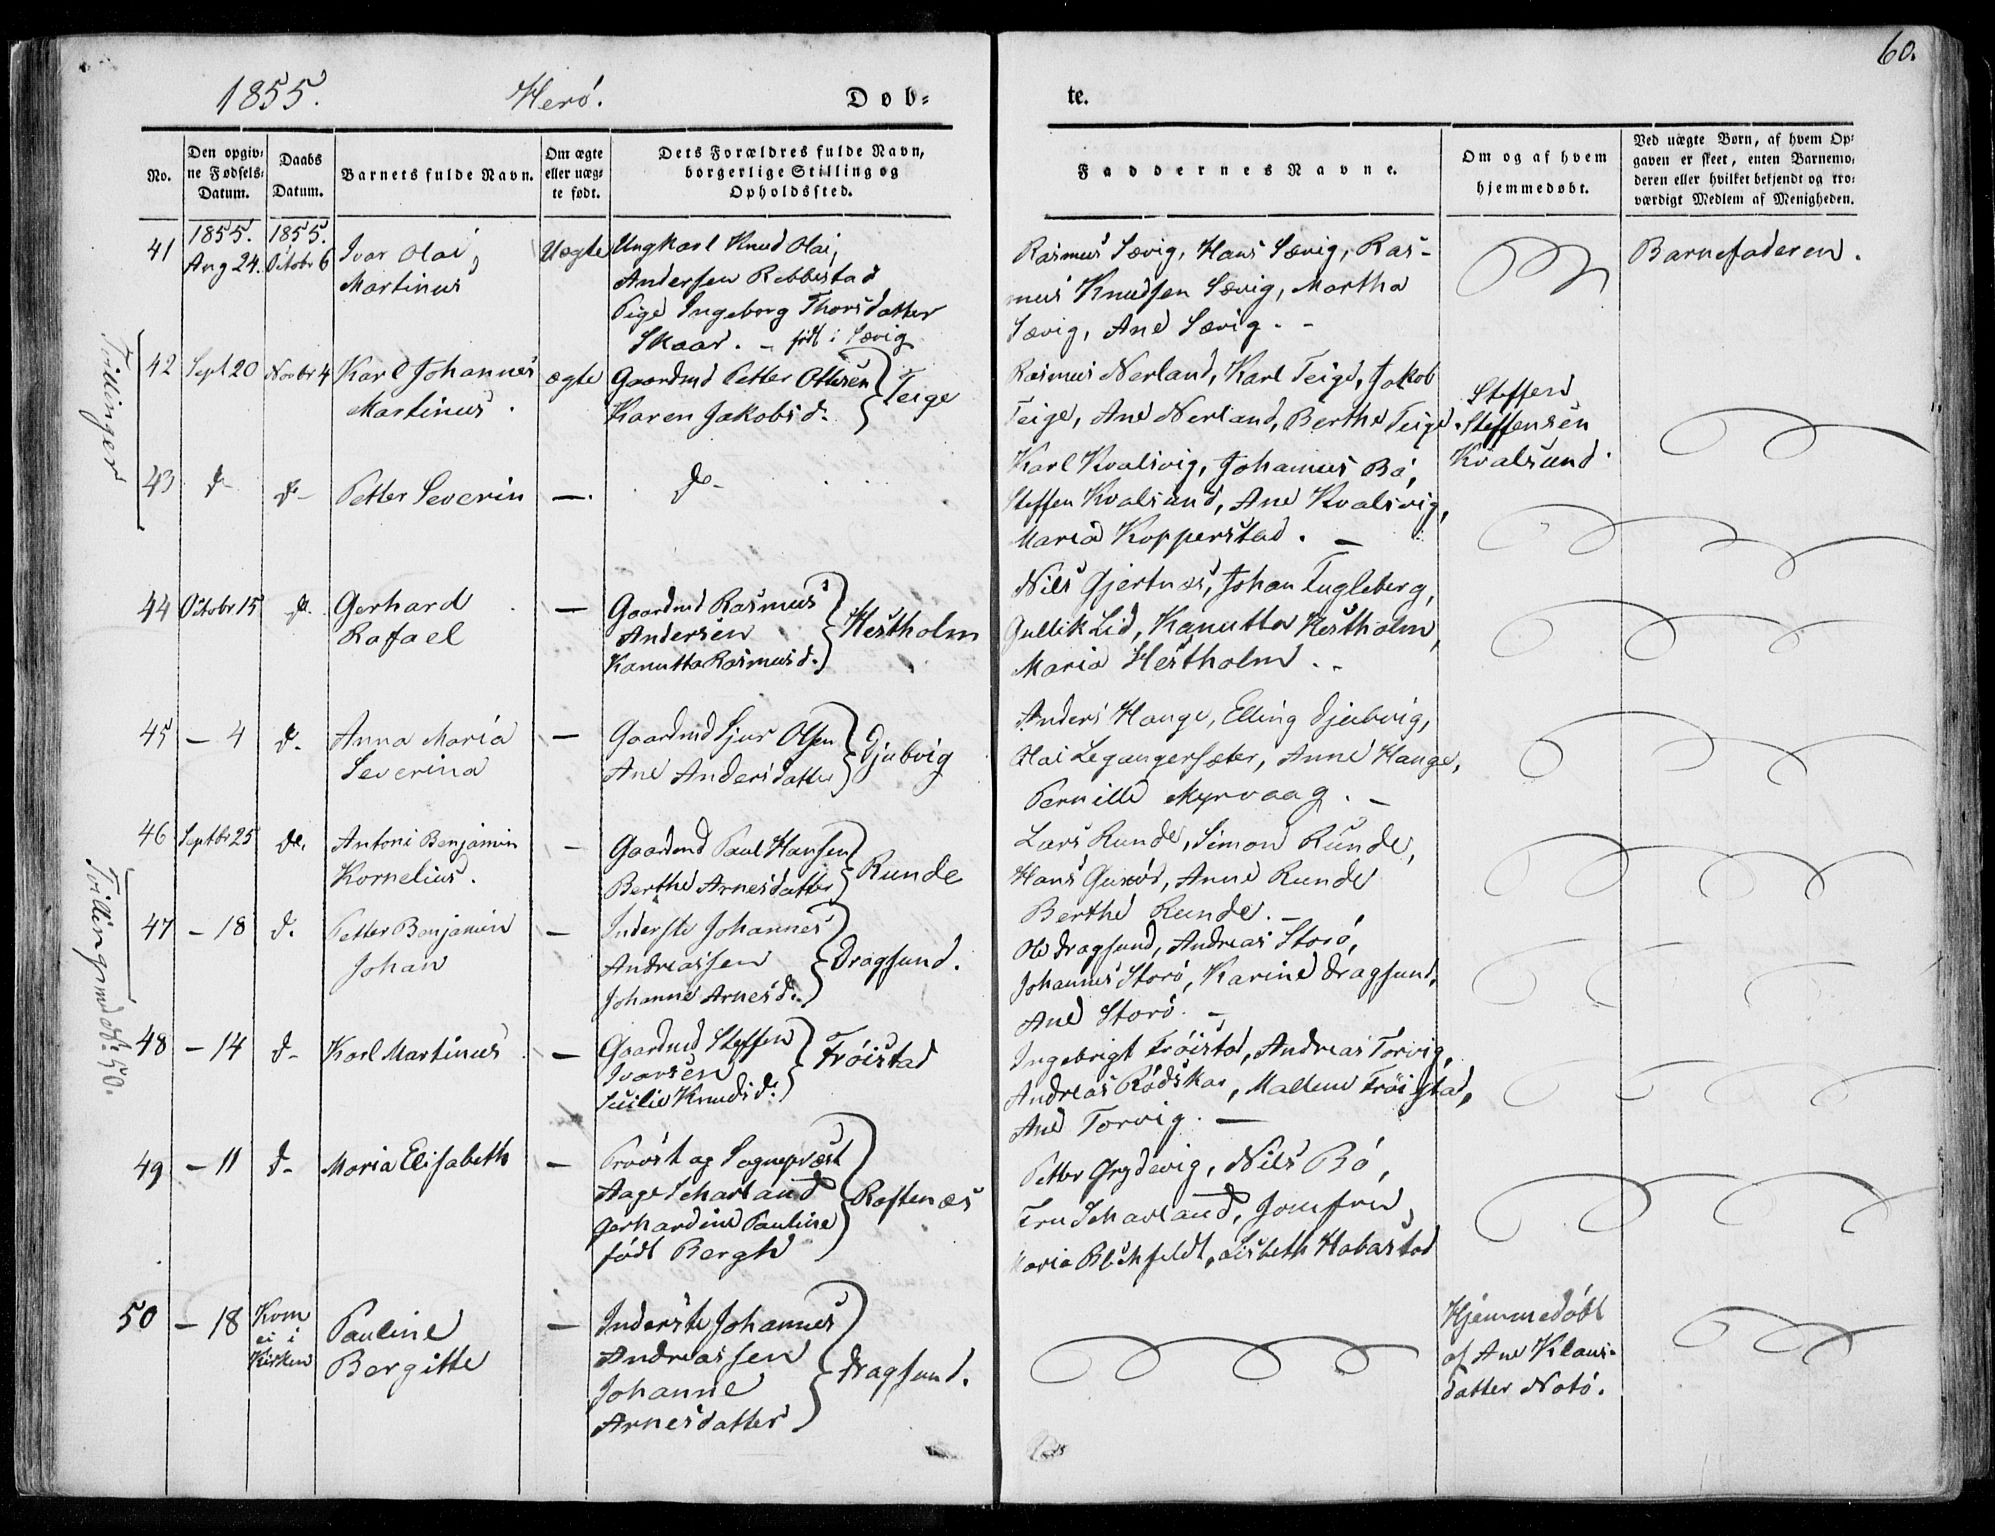 60.
1855. Herö. Døb-
te.
No.
Den opgiv-
ne Fødsels-
Datum.
Daabs
Datum.
Barnets fulde Navn.
Om ægte
eller uæg-
te født.
Dets Forældres fulde Navn,
borgerlige Stilling og
Opholdssted.
Faddernes Navne.
Om og af hvem
hjemmedøbt.
Ved uægte Børn, af hvem Op-
gaven er skeet, enten Barnemo-
deren eller hvilket bekjendt og tro-
værdigt Medlem af Menigheden.
41
1855.
Aug 24.
1855.
Octobr 6
Ivar Olai
Martinus
Uægte
Ungkarl Knud Olai
Andersen Robbestad
Pige Ingeborg Thorsdatter
Skaar. - født i Sævig
Rasmus Sævig, Hans Sævig, Ras-
mus Knudsen Sævig, Martha
Sævig, Ane Sævig. -
Barnefaderen.
Tvillinger
42
Sept 20
Novbr 4
Karl Johannes
Martinus.
ægte
Gaardmd Petter Ottesen
Karen Jakobsd.
Teige
Rasmus Nerland, Karl Teige, Jakob
Teige, Ane Nerland, Berthe Teige.
Steffen
Steffensen
Kvalsund.
43
d-
do-
Petter Severin
-
do-
Karl Kvalsvig, Johannes Bö,
Steffen Kvalsund, Ane Kvalsvig,
Maria Kopperstad. -
44
Octobr 15
do.
Gerhard
Rafael
-
Gaardmd Rasmus
Andersen
Kanutta Rasmusd.
Hestholm
Nils Gjertnæs, Johan Fugleberg,
Gullik Lid, Kanutta Hestholm,
Maria Hestholm. -
45
- 4
d.
Anna Maria
Severina
-
Gaardmd Sjur Olsen
Ane Andersdatter
Djubvig
Anders Hauge, Elling Djubvig,
Olai Legangersæter, Anne Hauge,
Pernille Myrvaag. -
46
Septbr 25
do.
Antoni Benjamin
Kornelius.
-
Gaardmd Paul Hansen
Berthe Arnesdatter
Runde
Lars Runde, Simon Runde,
Hans, Anne Runde
Berthe Runde. -
Tvilling med No. 50.
47
- 18
d.
Petter Benjamin
Johan
-
Inderste Johannes
Andreassen
Johanne Arnesd.
Dragsund.
Ole Dragsund, Andreas Storö,
Johannes Storö, Karine Dragsund,
Ane Storö. -
48
- 14
d-
Karl Martinus
-
Gaardmd Steffen
Ivarsen
Knudsd.
Fröistad
Ingebrigt Fröistad, Andreas Torvig,
Andreas Rödskar, Fröistad,
Ane Torvig. -
49
- 11
d-
Maria Elisabeth
-
Provst og Sognepræst
Aage Scharland
Gerhardine Pauline
født Bergh
Røftenæs
Petter, Nils Bö,
Fru Scharland, Jomfru
Maria Blichfeldt, Lisbeth Habostad
50
- 18
Kom
ei i
Kirken
Pauline
Bergitte
-
Inderste Johannes
Andreassen
Johanne
Arnesdatter
Dragsund.
Hjemmedöbt
af Ane Klaus-
datter Notö.